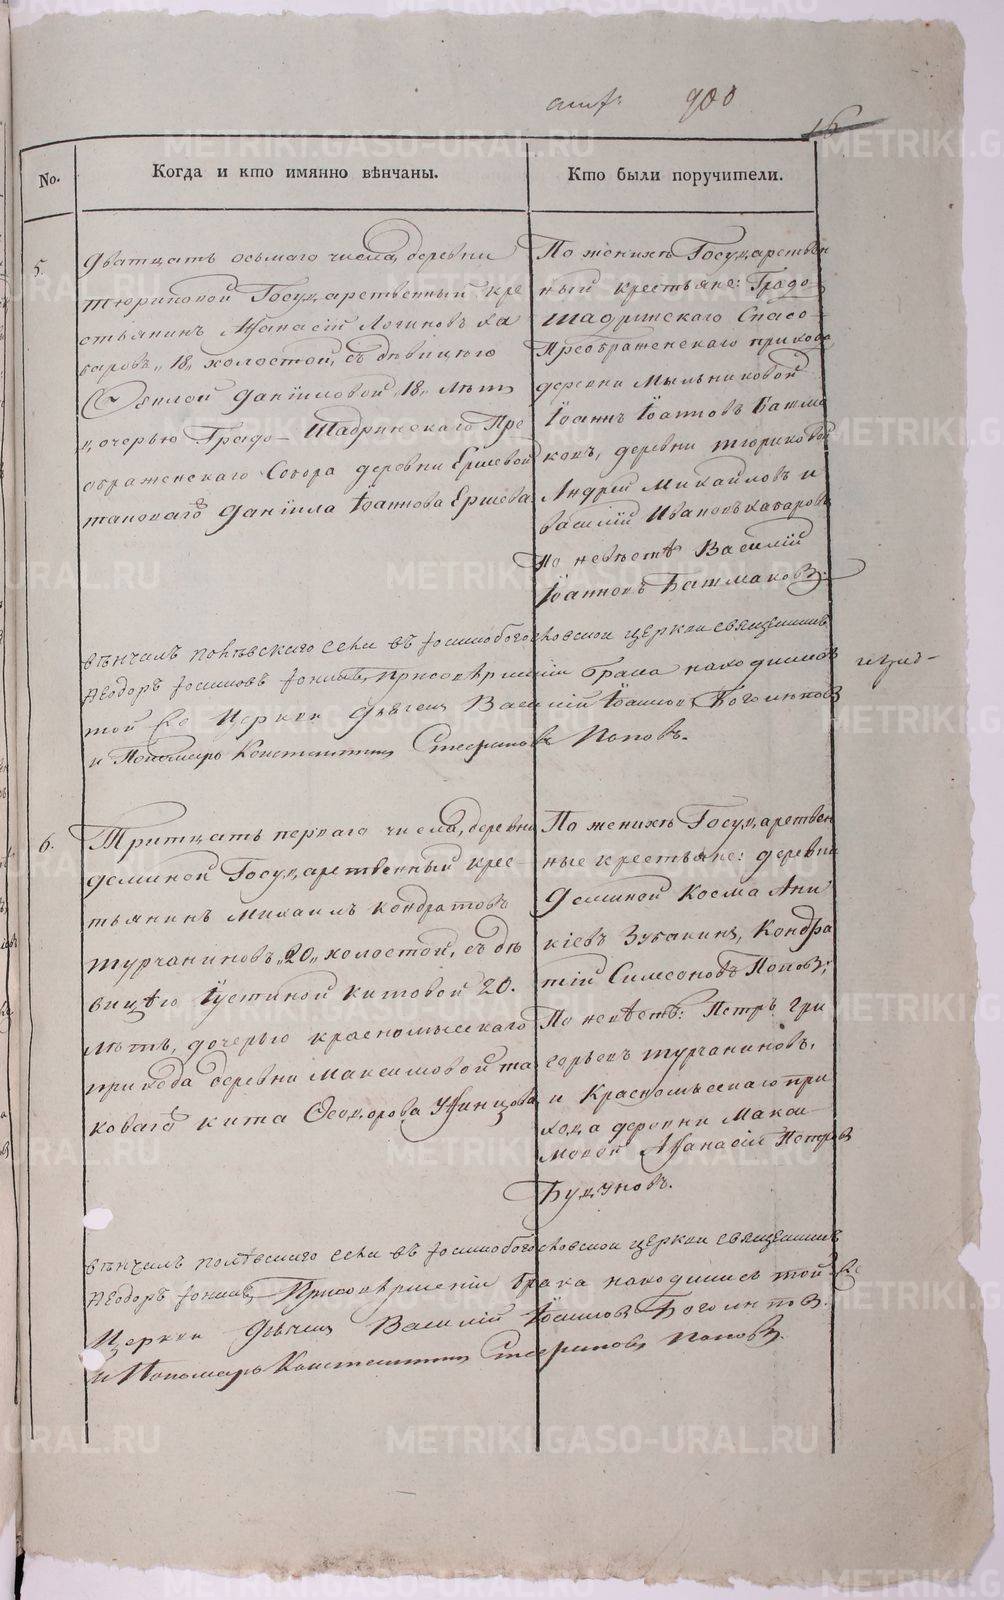 900
16
No.
Когда и кто имянно вѣнчаны.
Кто были поручители.
5.
Дватцать осьмаго числа, деревни
тюриковой Государственный кре
стьянинъ Афанасій Логиновъ ка
баровъ „18„ холостой, съ дѣвицею
Ѳеклой Даніиловой „18„ лѣтъ
дочерью Градо-Шадринскаго Пре
ображенскаго Собора деревни Ершевой
таковагожъ Даніила Іоаннова Ершева
По женихѣ Государствен
ный крестьяне: Градо
Шадринскаго Спасо-
Преображенскаго прихода
деревни Мыльниковой
Іоаннъ Іоанновъ Башма
ковъ, деревни тюриковой
Андрей Михайловъ и
Василій Ивановъ кабаровъ
По невѣстѣ Василій
Іоанновъ Башмаковъ.
вѣнчалъ села въ Іоаннобогословской церкви священникъ
Ѳеодоръ При совершеніи брака находились
той Церкви дьячекъ Василій Іоанновъ Боголѣповъ
и Пономарь Константинъ Стефановъ Поповъ.
6.
Тритцать перваго числа, деревни
деминой Государственный крес-
тьянинъ Михаилъ кондратовъ
турчаниновъ „20„ холостой, съ дѣ
вицѣю Іустиной китовой 20.
лѣтъ, дочерью красномысскаго
прихода деревни Максимовой та
коваго кита Ѳеодорова Уфинцова
По женихѣ Государствен
ные крестьяне: деревни
Деминой Косма Ани
кіевъ Зубакинъ, Кондра
тій Симеоновъ Поповъ;
По невѣстѣ: Петръ Гри
горьевъ турчаниновъ,
и Красномысскаго при
хода деревни Макси
мовой Афанасій Петровъ
Будуновъ.
вѣнчалъ села въ Іоаннобогословской церкви священникъ
Ѳеодоръ При совершеніи брака находились той
Церкви дьячекъ Василій Іоанновъ Боголѣповъ.
и Пономарь Константинъ Стефановъ Поповъ.
METRIKI.GASO-URAL.RU